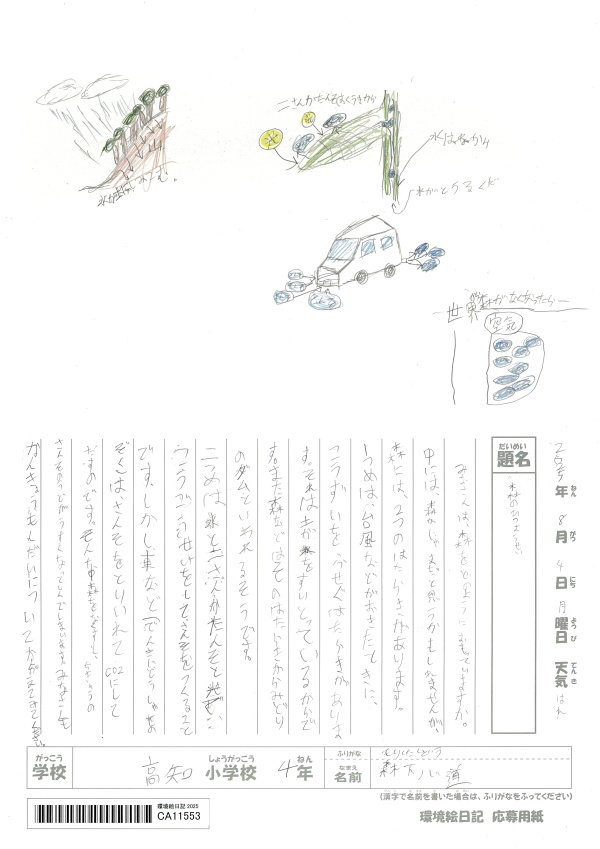 二さんかたんそ
水
水
水は
水がとうるくだ
世界の森がなくなったら
空気
2025年 8月 4日 月曜日 天気 はれ
だいめい
題名
森のひつようせい
みなさんは、森をどのように おもっていますか。
中には、森がじゃまだと思う人かもしれませんが、
森には、2つのはたらきがあります。
1つめは、台風などがおきたときに、
こうずいを、ふせぐはたらきがありま
す。それは土が水をすいとっているからで
す。また森ではそのはたらきからみどり
のダムといわれるそうです。
二つめは水と二さんかたんそと光で、
こうごうせいをして、さんそをつくること
です。しかし、車などで
ぞくはさんそをとりいれて CO2にして
だすのです。そんな中森をなくすと、
さんそのりょうがうすくなってしんでしまいます。みなさんも
かんきょうもんだいについてかんがえてみて
がっこう
学校
高知
しょうがっこう
小学校
4年
ふりがな
なまえ
名前
森下心道
(漢字で名前を書いた場合は、ふりがなをふってください)
環境絵日記 2025
CA11553
環境絵日記 応募用紙